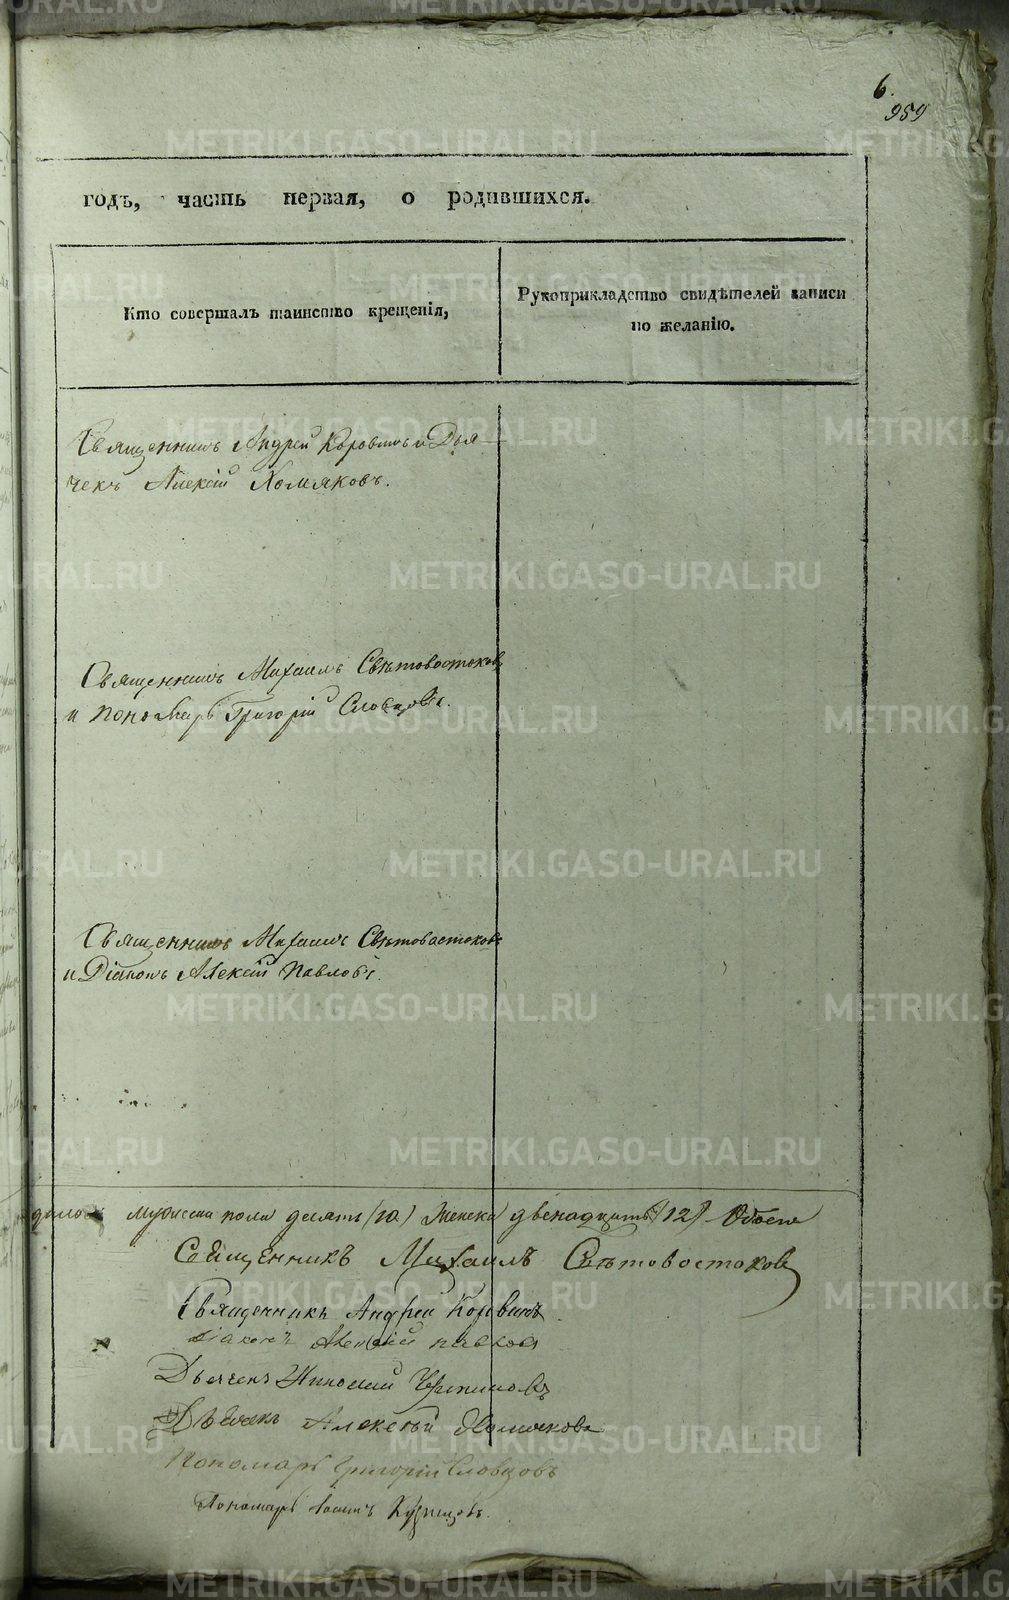 6.
959
годъ, часть первая, о родившихся.
Кто совершалъ таинство крещенія,
Рукоприкладство свидѣтелей записи
по желанію.
Священникъ Андрей Коровинъ и Дья-
чекъ Алексій Хомяковъ.
Священникъ Михаилъ Свѣтовостоковъ
и Пономарь Григорій Словцовъ.
Священникъ Михаилъ Свѣтовостоковъ
и Діаконъ Алексій Павловъ.
мужеска пола десять (10) женска двенадцать (12) Обоего
Священникъ Михаилъ Свѣтовостоковъ
Священникъ Андрей Коровинъ
Діаконъ Алексій Павловъ
Дьячекъ Николай
Дьячекъ Алексей Хомяковъ
Пономарь Григорій Словцовъ
Пономарь Кузнецовъ.
METRIKI.GASO-URAL.RU